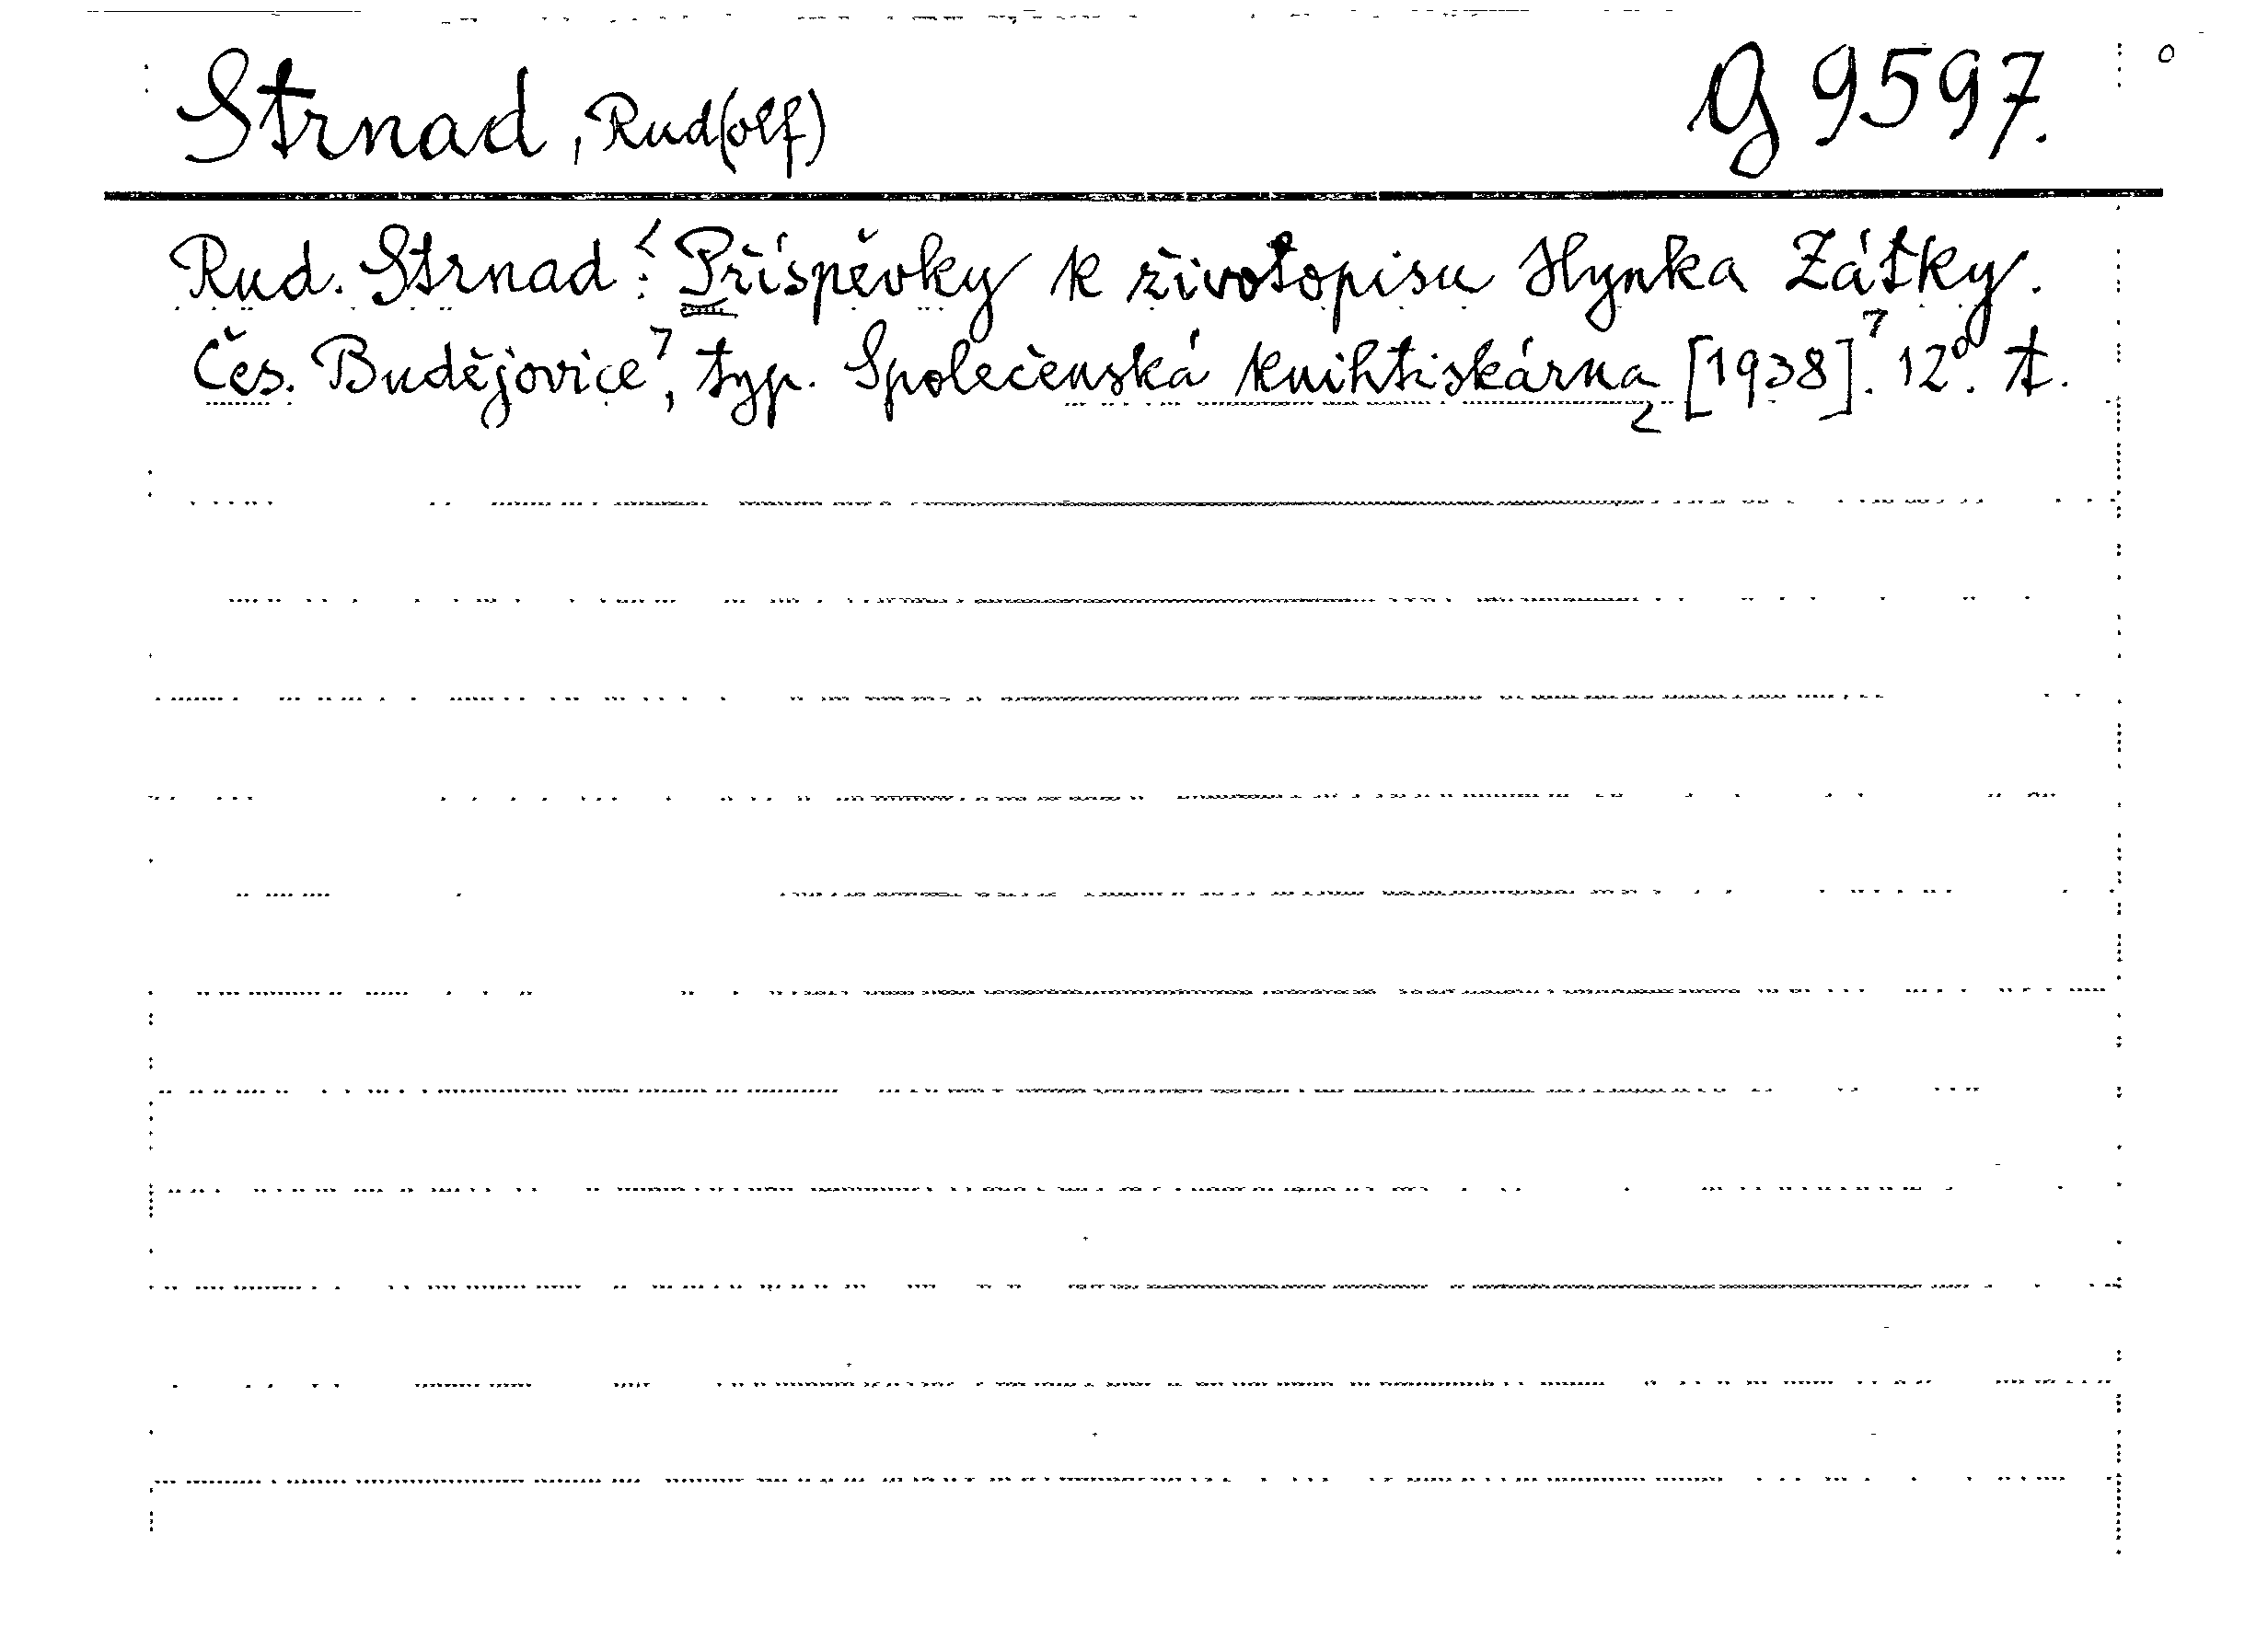 Strnad, Rud(olf) G 9597.
Rud. Strnad: Příspěvky k životopisu Hynka Zátky.
Čes. Budějovice, typ. Společenská knihtiskárna [1938]. 12°. A.